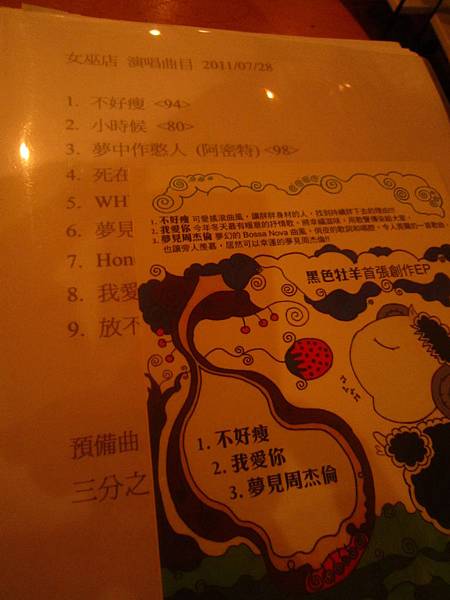 女巫店 演唱曲目 2011/07/28
1. 不好瘦 <94>
2. 小時候 <80>
3. 夢中作憨人 (阿密特) <98>
4. 死在
5. WH
6. 夢見
7. Hon
8. 我愛
9. 放不
預備曲
三分之
1. 不好瘦 可愛搖滾曲風，讓胖胖身材的人，找到持續胖下去的理由!!
2. 我愛你 今年冬天最有暖意的抒情歌，將幸福滋味，用歌聲傳染給大家。
3. 夢見周杰倫 夢幻的 Bossa Nova 曲風，俏皮的歌詞和唱腔，令人莞爾的一首歌曲，
也讓旁人羨慕，居然可以幸運的夢見周杰倫!!
黑色牡羊首張創作EP
1. 不好瘦
2. 我愛你
3. 夢見周杰倫